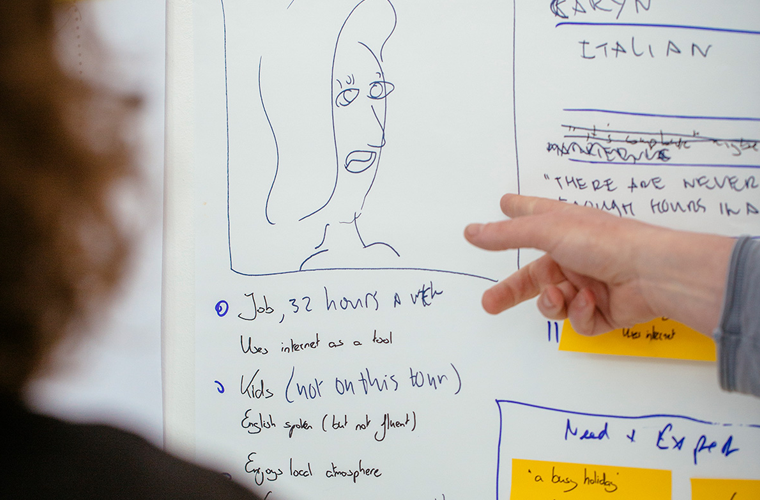 KARYN
ITALIAN
"THERE ARE NEVER
ENOUGH HOURS IN A
Job, 32 hours a week
Uses internet as a tool
Kids (not on this tour)
English spoken (but not fluent)
Enjoys local atmosphere
Uses internet
Need + Expect
'a busy holiday'